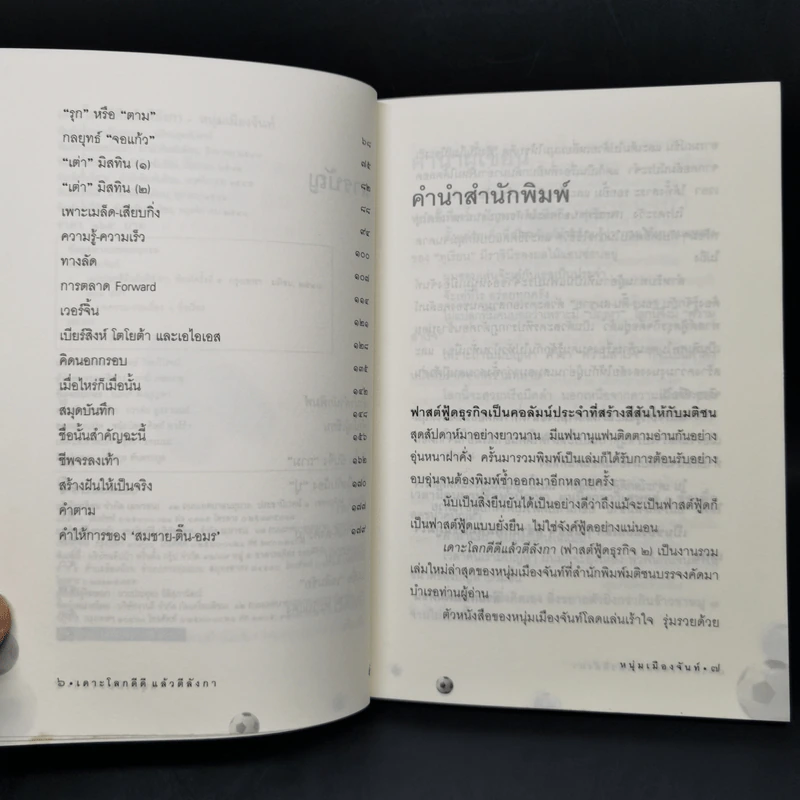 "รุก" หรือ "ตาม" ๖๘
กลยุทธ์ "จอแก้ว" ๗๕
"เต่า" มิสทิน (๑) ๘๒
"เต่า" มิสทิน (๒) ๘๘
เพาะเมล็ด-เสียบกิ่ง ๙๔
ความรู้-ความเร็ว ๑๐๐
ทางลัด ๑๐๘
การตลาด Forward ๑๑๔
เวอร์จิ้น ๑๒๑
เบียร์สิงห์ โตโยต้า และเอไอเอส ๑๒๘
คิดนอกกรอบ ๑๓๕
เมื่อไหร่ก็เมื่อนั้น ๑๔๒
สมุดบันทึก ๑๔๘
ชื่อนั้นสำคัญฉะนี้ ๑๕๖
ชีพจรลงเท้า ๑๖๒
สร้างฝันให้เป็นจริง ๑๘๐
คำตาม ๑๘๘
คำให้การของ "สมชาย-ติ๊น-อมร" ๑๘๙
๖ • เคาะโลกดีดี แล้วตีลังกา
คำนำสำนักพิมพ์
ฟาสต์ฟู้ดธุรกิจเป็นคอลัมน์ประจำที่สร้างสีสันให้กับมติชน
สุดสัปดาห์มาอย่างยาวนาน มีแฟนานุแฟนติดตามอ่านกันอย่าง
อุ่นหนาฝาคั่ง ครั้นมารวมพิมพ์เป็นเล่มก็ได้รับการต้อนรับอย่าง
อบอุ่นจนต้องพิมพ์ซ้ำออกมาอีกหลายครั้ง
นับเป็นสิ่งยืนยันได้เป็นอย่างดีว่าถึงแม้จะเป็นฟาสต์ฟู้ดก็
เป็นฟาสต์ฟู้ดแบบยั่งยืน ไม่ใช่จังค์ฟู้ดอย่างแน่นอน
เคาะโลกดีดีแล้วตีลังกา (ฟาสต์ฟู้ดธุรกิจ ๒) เป็นงานรวม
เล่มใหม่ล่าสุดของหนุ่มเมืองจันท์ที่สำนักพิมพ์มติชนบรรจงคัดมา
บำเรอท่านผู้อ่าน
ตัวหนังสือของหนุ่มเมืองจันท์โลดแล่นเร้าใจ รุ่มรวยด้วย
หนุ่มเมืองจันท์ • ๗